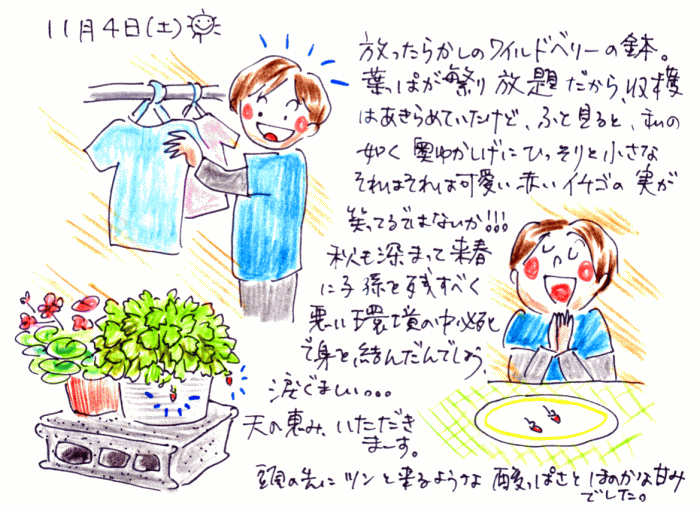 11月4日(土)
放ったらかしのワイルドベリーの鉢。
葉っぱが繁り放題だから、収穫
はあきらめていたけど、ふと見ると、私の
如く奥ゆかしげにひっそりと小さな
それはそれは可愛い赤いイチゴの実が
笑ってるではないか!!!
秋も深まって来春
に子孫を残すべく
悪い環境の中必ると
で身を結んだんでしょう。
涙ぐましい。。。
天の恵み、いただき
まーす。
頭の先にツンと来るような酸っぱさとほのかな甘み
でした。